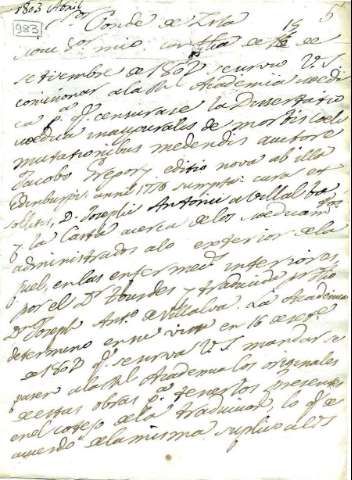 1803 Abril
983
5
Sor Conde de Isla
15
Mui Sor mio: con fha de 12 de
setiembre de 1802 se sirvio V.S.
comisionar a la Rl Academia medi
ca pa qe censurase la Dissertatio
medica inauguralis de morbis coeli
mutationibus medendis auctore
Jacobo Gregory editio nova ab illa
Edinburgi anni 1776 sumpta: cura et
D. Josephi Antonii a Villalba
y la Carta acerca de los medicamtos
administrados al exterior de la
piel, en las enfermeds interiores,
por el Dr y traducida pr
Dn Joseph Anto de Villalva. La Academia
determino en su vista en 16 de
de 1802 qe se sirva V.S. mandar se
pasen a la Rl Academia los originales
de estas obras pa tenerlos presentes
en el cotejo de la traducion, lo qe de
acuerdo de la misma suplico a V.S.